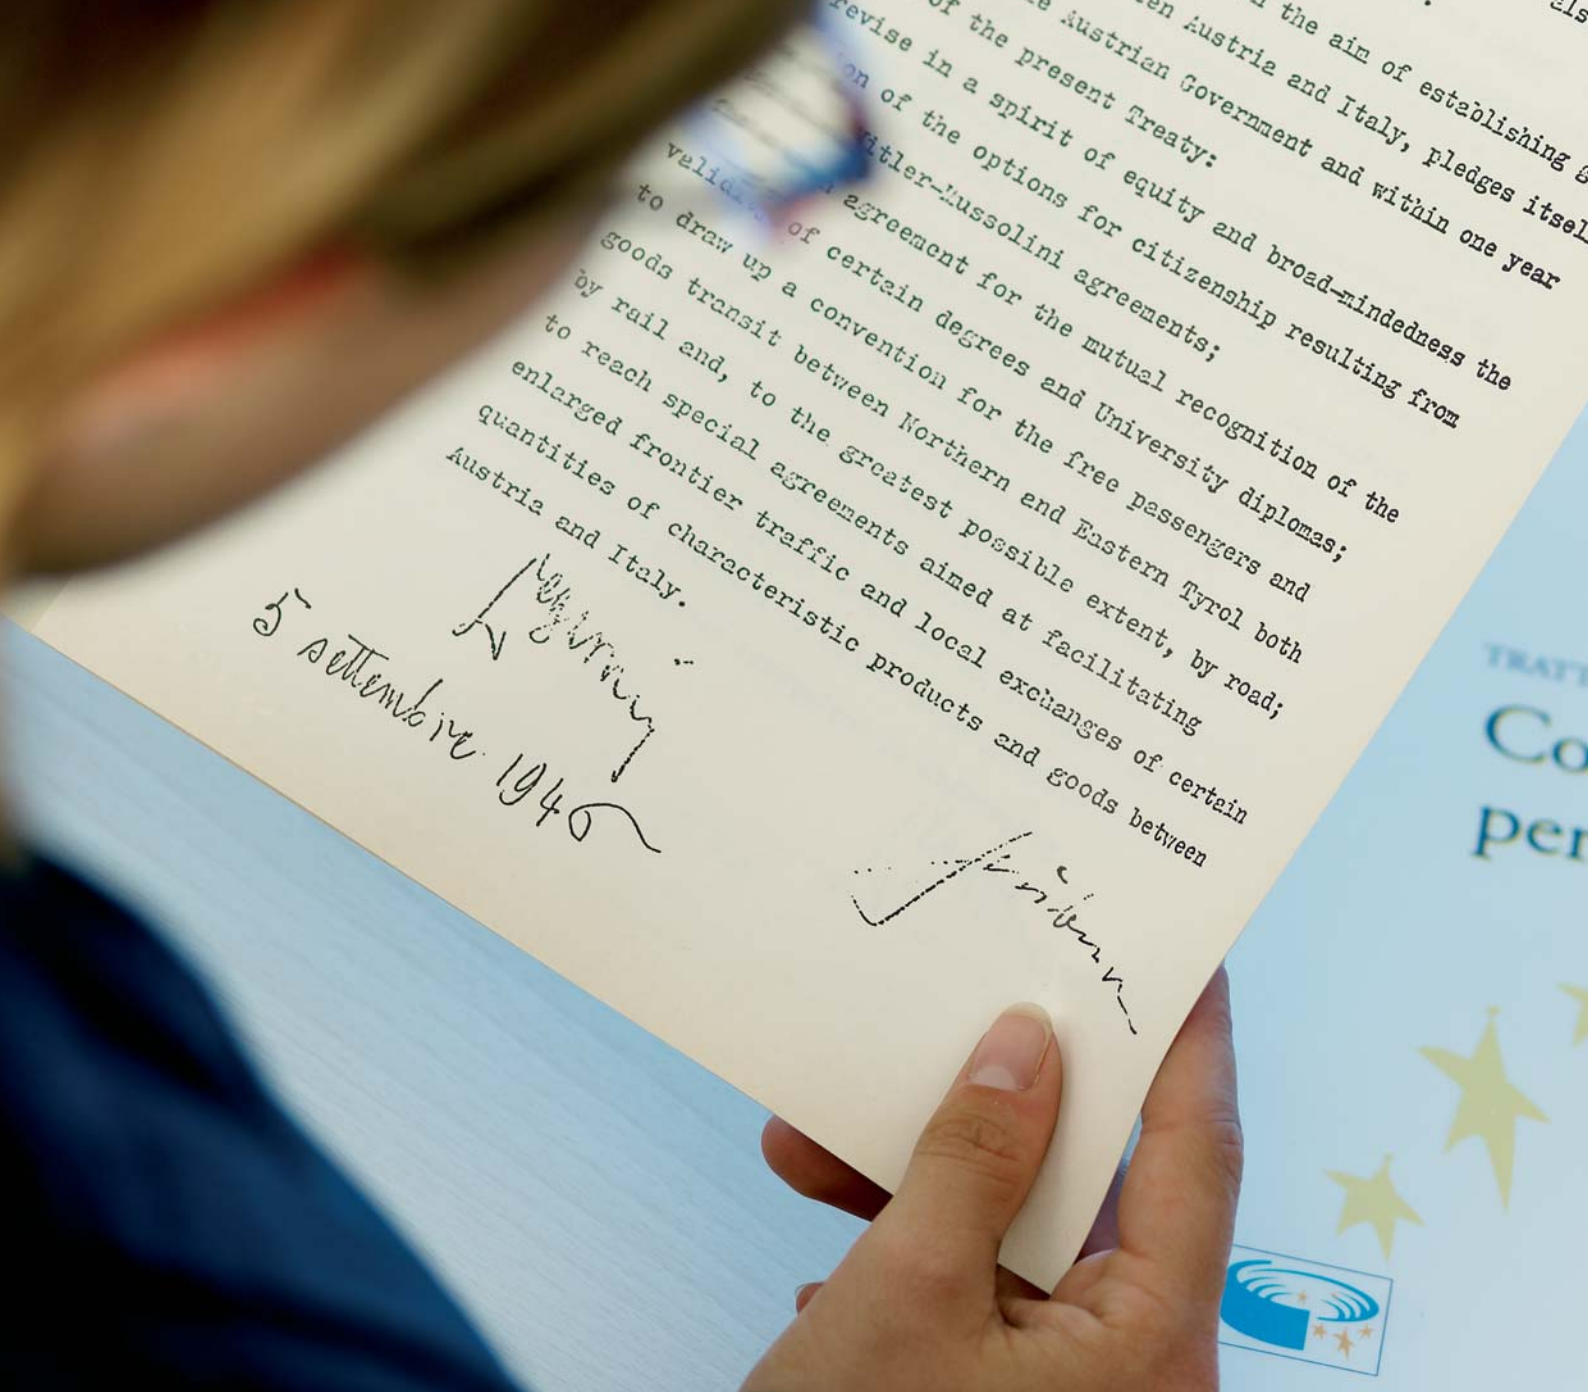 als
the aim of establishing g
en Austria and Italy, pledges itsel
e Austrian Government and within one year
of the present Treaty:
revise in a spirit of equity and broad-mindedness the
on of the options for citizenship resulting from
itler-Mussolini agreements;
agreement for the mutual recognition of the
validity of certain degrees and University diplomas;
to draw up a convention for the free passengers and
goods transit between Northern and Eastern Tyrol both
by rail and, to the greatest possible extent, by road;
to reach special agreements aimed at facilitating
enlarged frontier traffic and local exchanges of certain
quantities of characteristic products and goods between
Austria and Italy.
5 settembre 1946
TRATT
Co
per